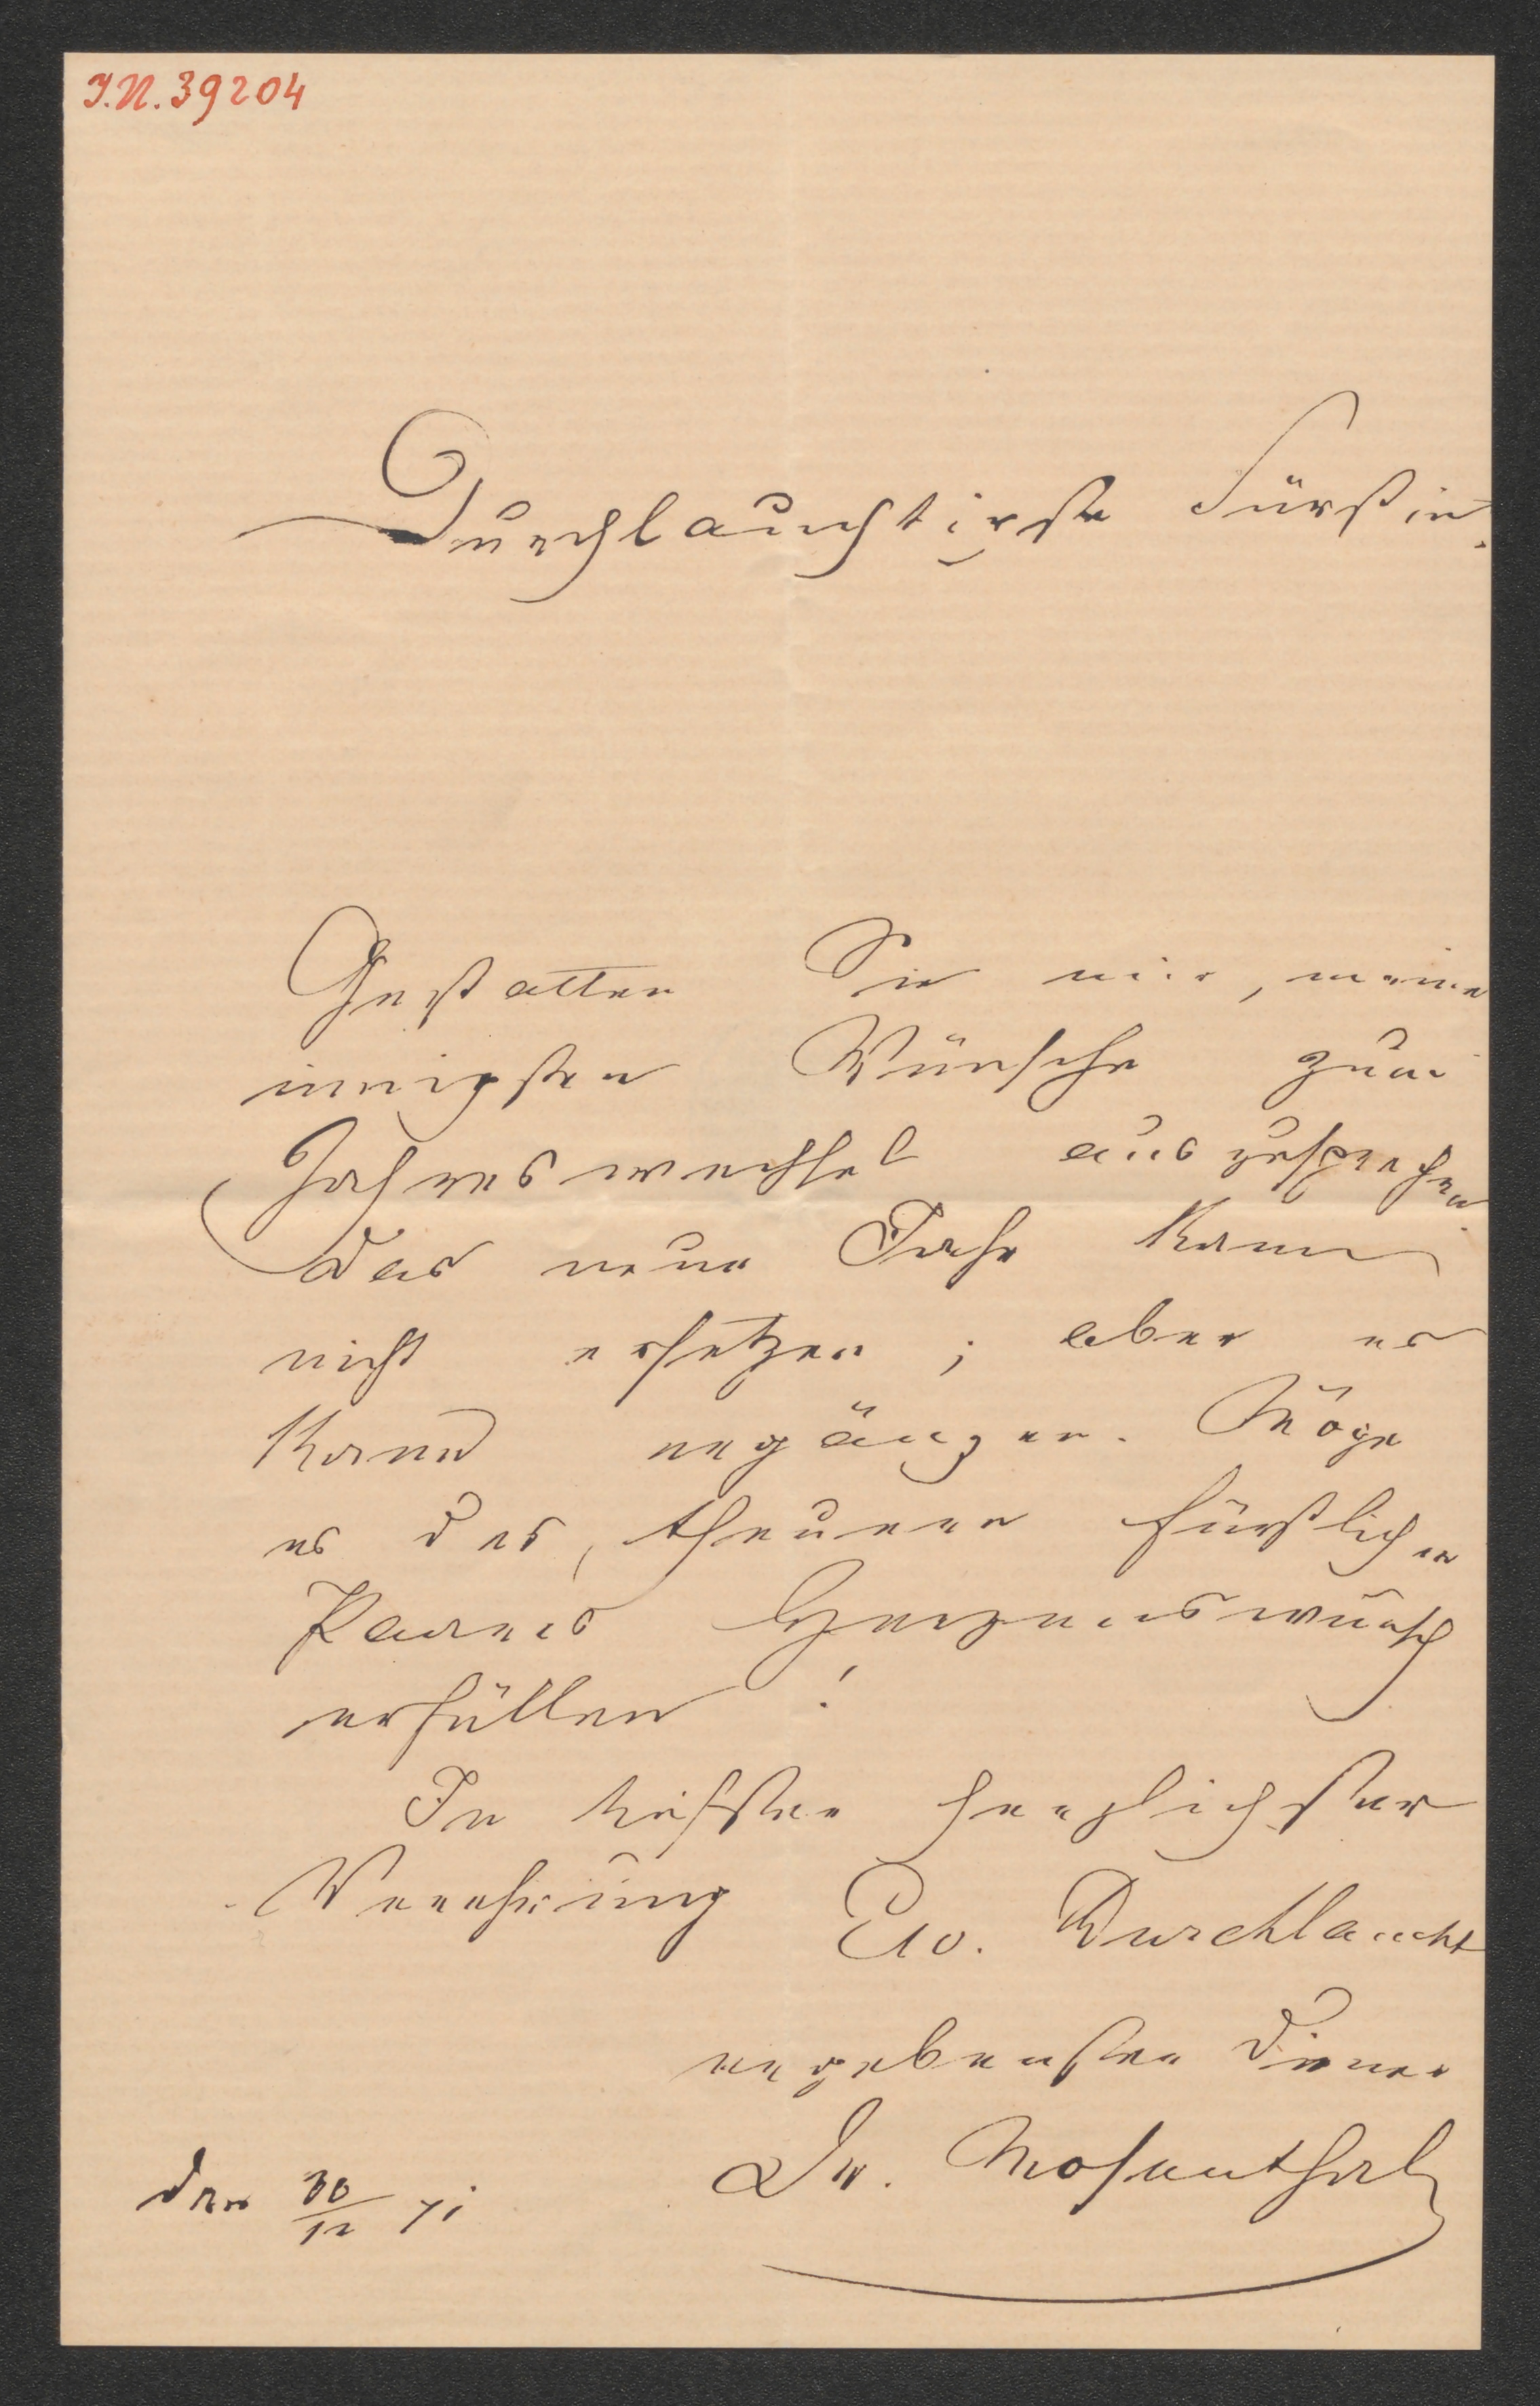 I.N. 39204
Durchlauchtigste Fürstin.
Gestatten Sie mir, meine
innigsten Wünsche zum
Jahreswechsel auszusprechen.
Das neue Jahr kann
nicht ersetzen; aber es
kann ergänzen. Möge
es des theueren fürstlichen
Paares Herzenswunsch
erfüllen!
In herzlichster
Verehrung Ew. Durchlaucht
ergebenster Diener
Dr. Mosenthal
den 30/12 71